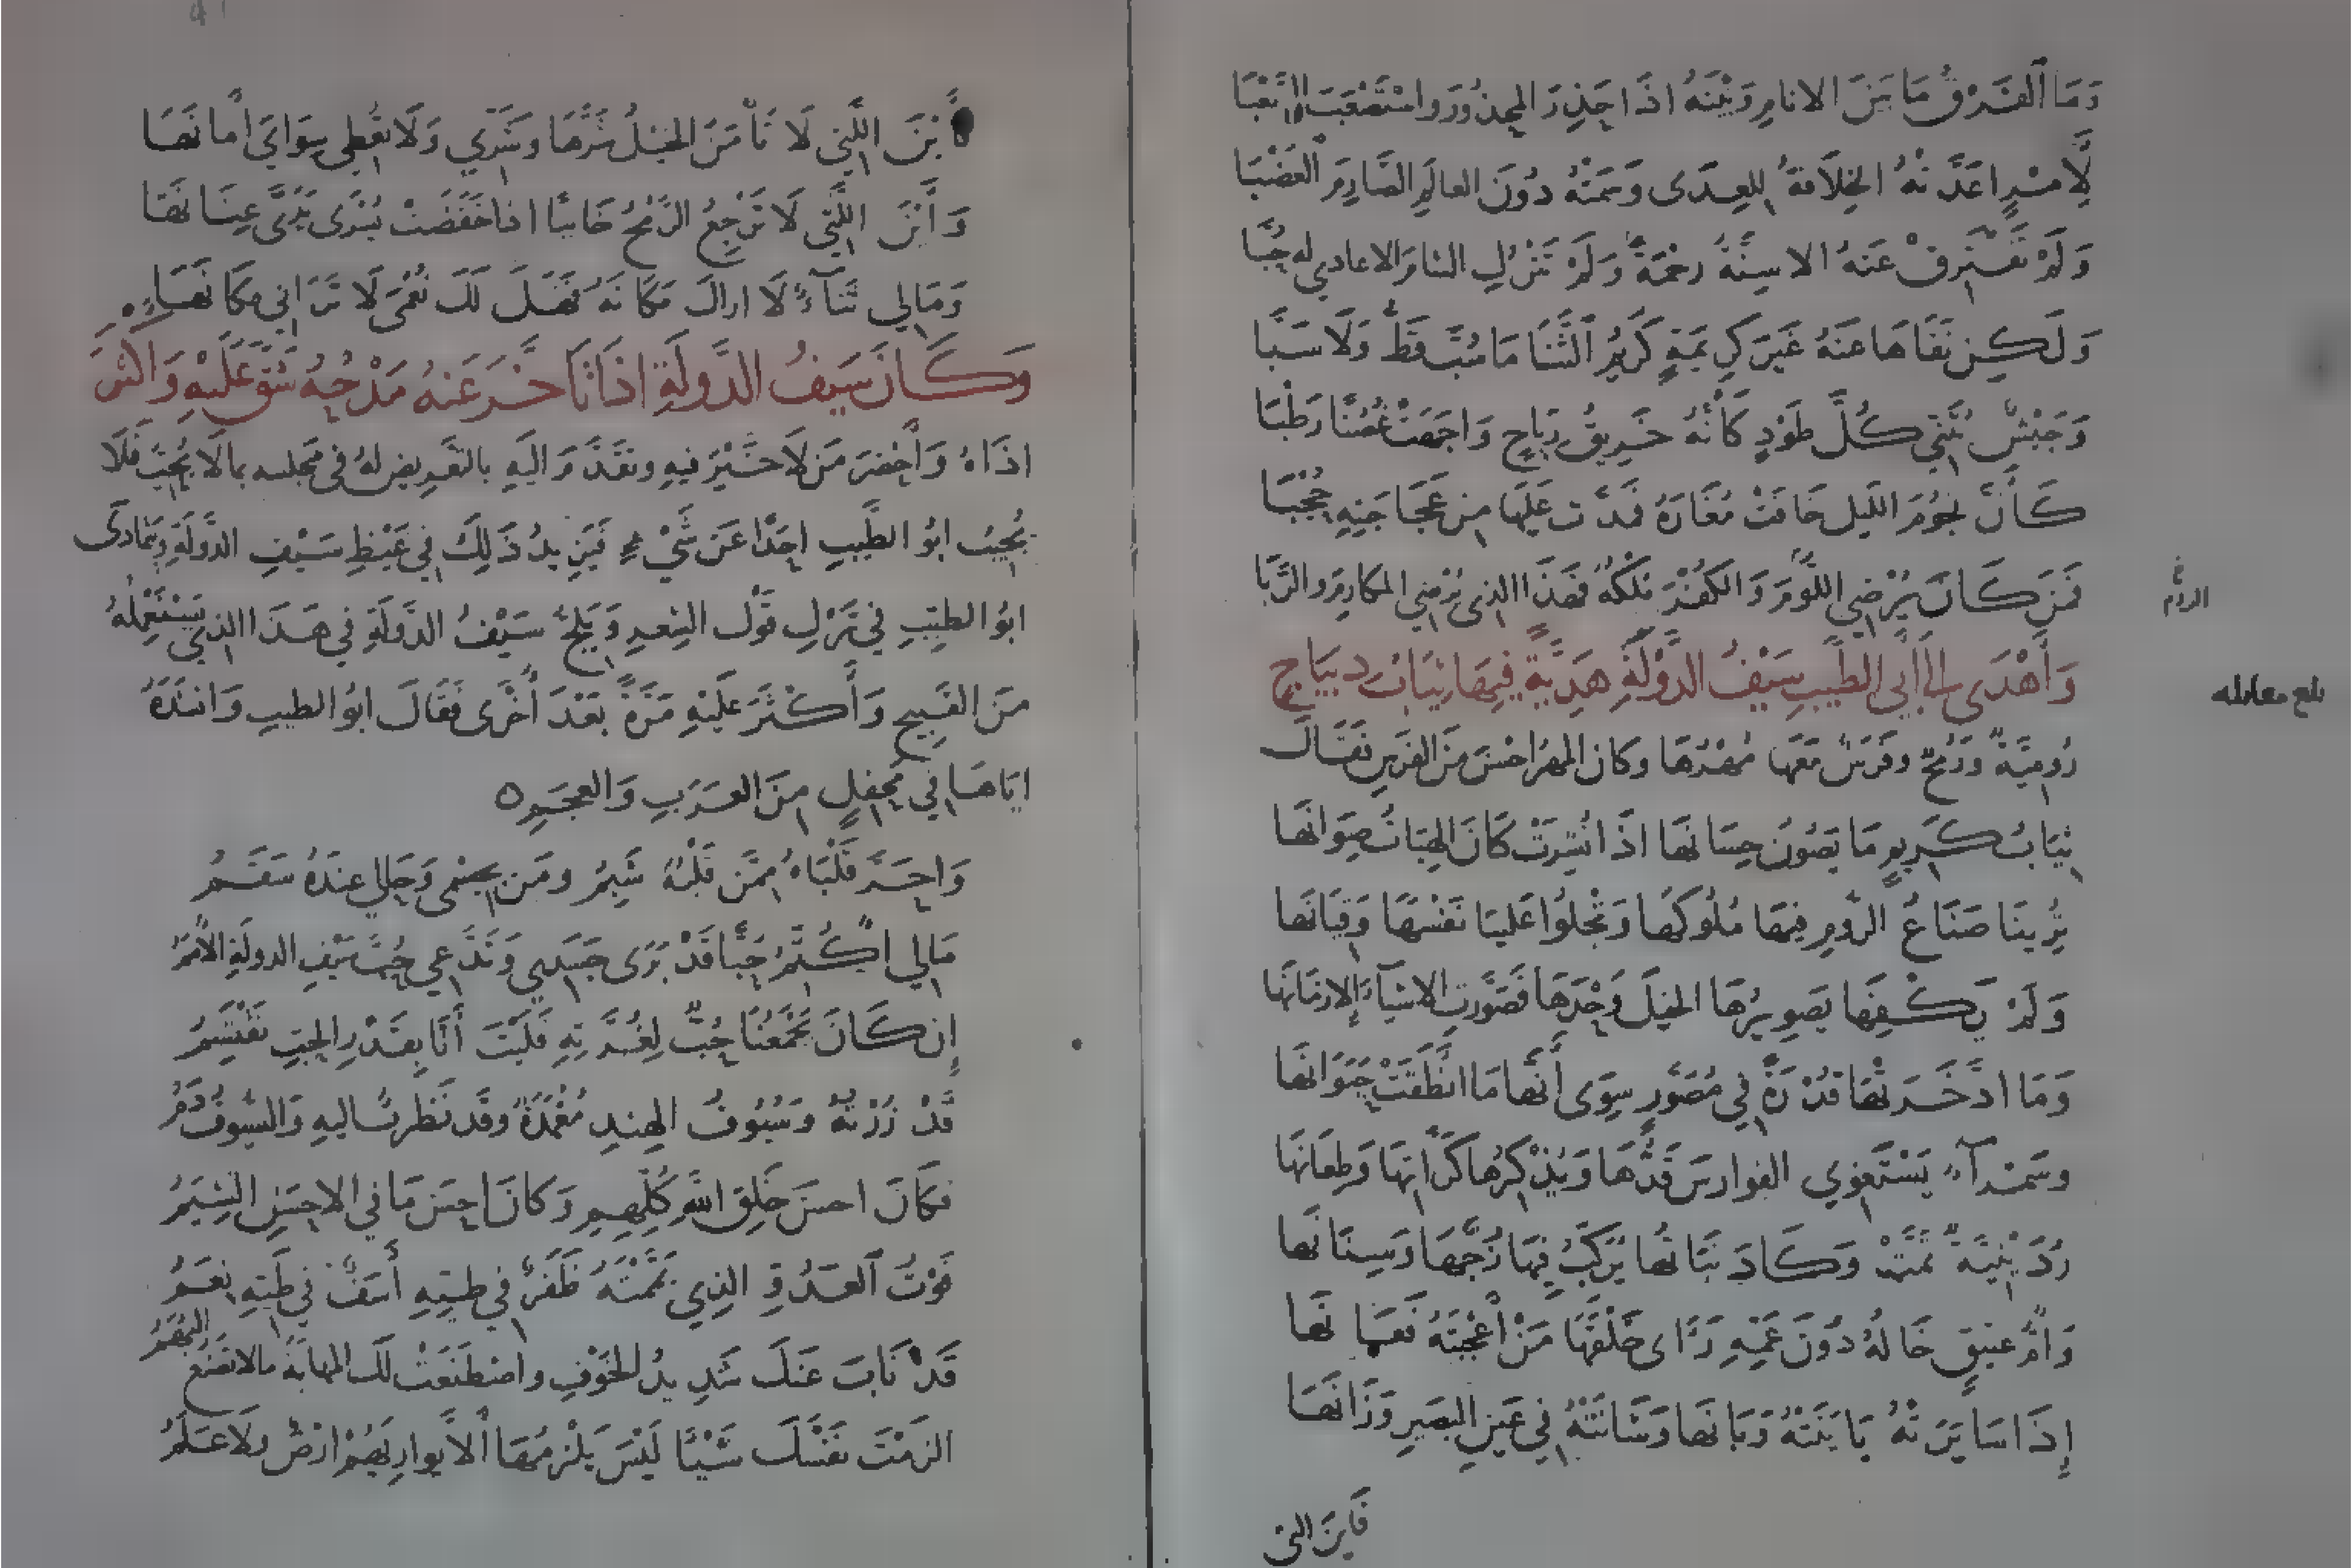 وَمَا الفَرْقُ مَا بَيْنَ الانامِ وَبَيْنَهُ اذَا حَذِرَ المحذورَ واسْتَصْعَبَ الصَّعْبَا
لِأَمْرٍ اعَدَّتْهُ الخِلَافَةُ لِلعِدَى وَسَمَّتْهُ دُونَ العالَمِ الصَّارِمَ العَضْبَا
وَلَمْ تَفْتَرِقْ عَنهُ الاسِنَّةُ رحْمَةً وَلَمْ تَتْرُكِ الشامَ الاعادي له حُبَّا
وَلَكِن نَفَاهَا عنهُ غَيْرَ كَرِيمَةٍ كَرِيمُ الثَّنَا مَا سُبَّ قَطُّ وَلَا سَبَّا
وَجَيْشٌ يُثَنّي كُلَّ طَوْدٍ كَأَنَّهُ خَرِيقُ رِيَاحٍ وَاجَهَتْ غُصُنًا رَطْبَا
كَأَنَّ نُجُومَ اللَّيلِ خَافَتْ مُغَارَهُ فَمَدَّت عَلَيْهَا مِن عَجَاجَتِهِ حُجْبَا
فَمَن كَانَ يُرْضِي اللُّؤْمَ وَالكُفْرَ مُلْكُهُ فَهَذَا الذِى يُرْضِي المكارِمَ والرَّبَّا
وَأَهْدَى الى أَبي الطَّيِّبِ سَيْفُ الدَّوْلَةِ هَدِيَّةً فِيهَا ثِيَابُ دِيبَاجٍ
رُومِيَّةٌ وَرُمْحٌ وفَرَسٌ مَعَهَا مُهْرُهَا وكان المهرُ احْسَنَ مِنَ الفَرَسِ فَقَالَ
ثِيَابُ كَرِيمٍ مَا يَصُونُ حِسَانَهَا اذَا نُشِرَتْ كَانَ الهِبَاتُ صِوَانَهَا
تُرِينَا صَنَاعُ الرُّومِ فِيهَا مُلُوكَهَا وَتَجْلُوا عَلَينَا نَفْسَهَا وَقِيَانَهَا
وَلَمْ يَكْفِهَا تَصوِيرُهَا الخَيلَ وَحْدَهَا فَصَوَّرتِ الاشيَآءَ إلا زمَانَهَا
وَمَا ادَّخَرَتْهَا قُدْرَةً فِي مُصَوِّرٍ سِوَى أَنَّهَا مَا انْطَقَتْ حَيَوَانَهَا
وسَمْرَآءُ يَسْتَغوِي الفوارِسَ قَدُّهَا وَيُذْكِرُهَا كَرَّاتِهَا وَطِعَانَهَا
رُدَيْنِيَّةٌ تَمَّتْ وَكَادَ نَبَاتُهَا يُرَكِّبُ فِيهَا زُجَّهَا وَسِنَانَهَا
وَأُمُّ عَتِيقٍ خَالُهُ دُونَ عَمِّهِ رَأَى خَلْقَهَا مَنْ أَعْجَبَتْهُ فَعَانَهَا
إِذَا سَايَرَتْهُ بَايَنَتْهُ وَبَانَهَا وَشَانَتْهُ فِي عَيْنِ البَصِيرِ وَزَانَهَا
فَأينَ التى
الروم
بلغ مقابله
فَأَيْنَ الَّتِي لَا تَأْمَنُ الخَيْلُ شَرَّهَا وشَرِّي وَلَا تُعْطِي سِوَايَ أَمَانَهَا
وَأَيْنَ الَّتِي لَا تَرْجِعُ الرُّمْحَ خَائِبًا اذا خَفَضَتْ يُسْرَى يَدَيَّ عِنَانَهَا
وَمَالِي ثَنَآءٌ لَا اراكَ مَكَانَهُ فَهَل لَكَ نُعْمَى لَا تَرَانِي مَكَانَهَا
وَكَانَ سَيفُ الدَّولَةِ اذَا تَأَخَّرَ عَنهُ مَدْحُهُ شَقَّ عَلَيْهِ وَاكْثَرَ
اذَاهُ وَأَحْضَرَ مَن لَا خَيْرَ فيهِ وتقَدَّمَ اليهِ بالتَّعرِيضِ لهُ فى مَجلسه بمالا يُحِبُّ فَلَا
يُجِيبُ ابُو الطَّيبِ احَدًا عَن شَيْءٍ فَيَزِيدُ ذَلِكَ فِي غَيْظِ سَيْفِ الدَّولَةِ وَيَتَمادَى
ابُو الطيِّبِ في تَرْكِ قَوْلِ الشِعرِ وَيَلِجُّ سَيْفُ الدَّولَةِ فِي هَذَا الذي يَسْتَعْمِلُهُ
مِنَ القَبِيحِ وَأَكْثَرَ عَلَيْهِ مَرَّةً بَعْدَ أُخْرَى فَقَالَ ابُو الطيبِ وَانشَدَهُ
ايَاهَا فِي مَحْفِلٍ مِنَ العَرَبِ وَالعجَمِ ه
وَاحَرَّ قَلْبَاهُ مِمَّن قَلْبُهُ شَبِمُ ومَن بِجِسْمِى وَحَالِي عِندَهُ سَقَمُ
مَالِي اُكَتِّمُ حُبًّا قَدْ بَرَى جَسَدِي وَتَدَّعِي حُبَّ سَيْفِ الدولَةِ الأُمَمُ
إِن كَانَ يَجْمَعُنَا حُبٌّ لِغُرَّتِهِ فَلَيْتَ أَنَّا بِقَدْرِ الحُبِّ نَقْتَسِمُ
قَدْ زُرْتُهُ وَسُيُوفُ الهِندِ مُغْمَدَةٌ وقَد نَظَرتُ اليهِ وَالسُّيوفُ دَمُ
فَكَانَ احسَنَ خَلقِ اللَّهِ كُلِّهِمِ وَكانَ احسَنَ مَا فِي الاحسَنِ الشِّيَمُ
فَوْتُ العَدُوِّ الذِي يَمَّمْتَهُ ظَفَرٌ فِي طَيِّهِ أَسَفٌ في طَيِّهِ نِعَمُ
قَدْ نَابَ عَنكَ شَدِيدُ الخَوْفِ واصْطَنَعَتْ لَكَ المهابَةُ مالا تَصْنَعُ البُهَمُ
الزَمْتَ نَفْسَكَ شَيْئًا لَيْسَ يَلْزمُهَا أَلَّا يُوارِيَهُمْ ارْضٌ ولَا عَلَمُ